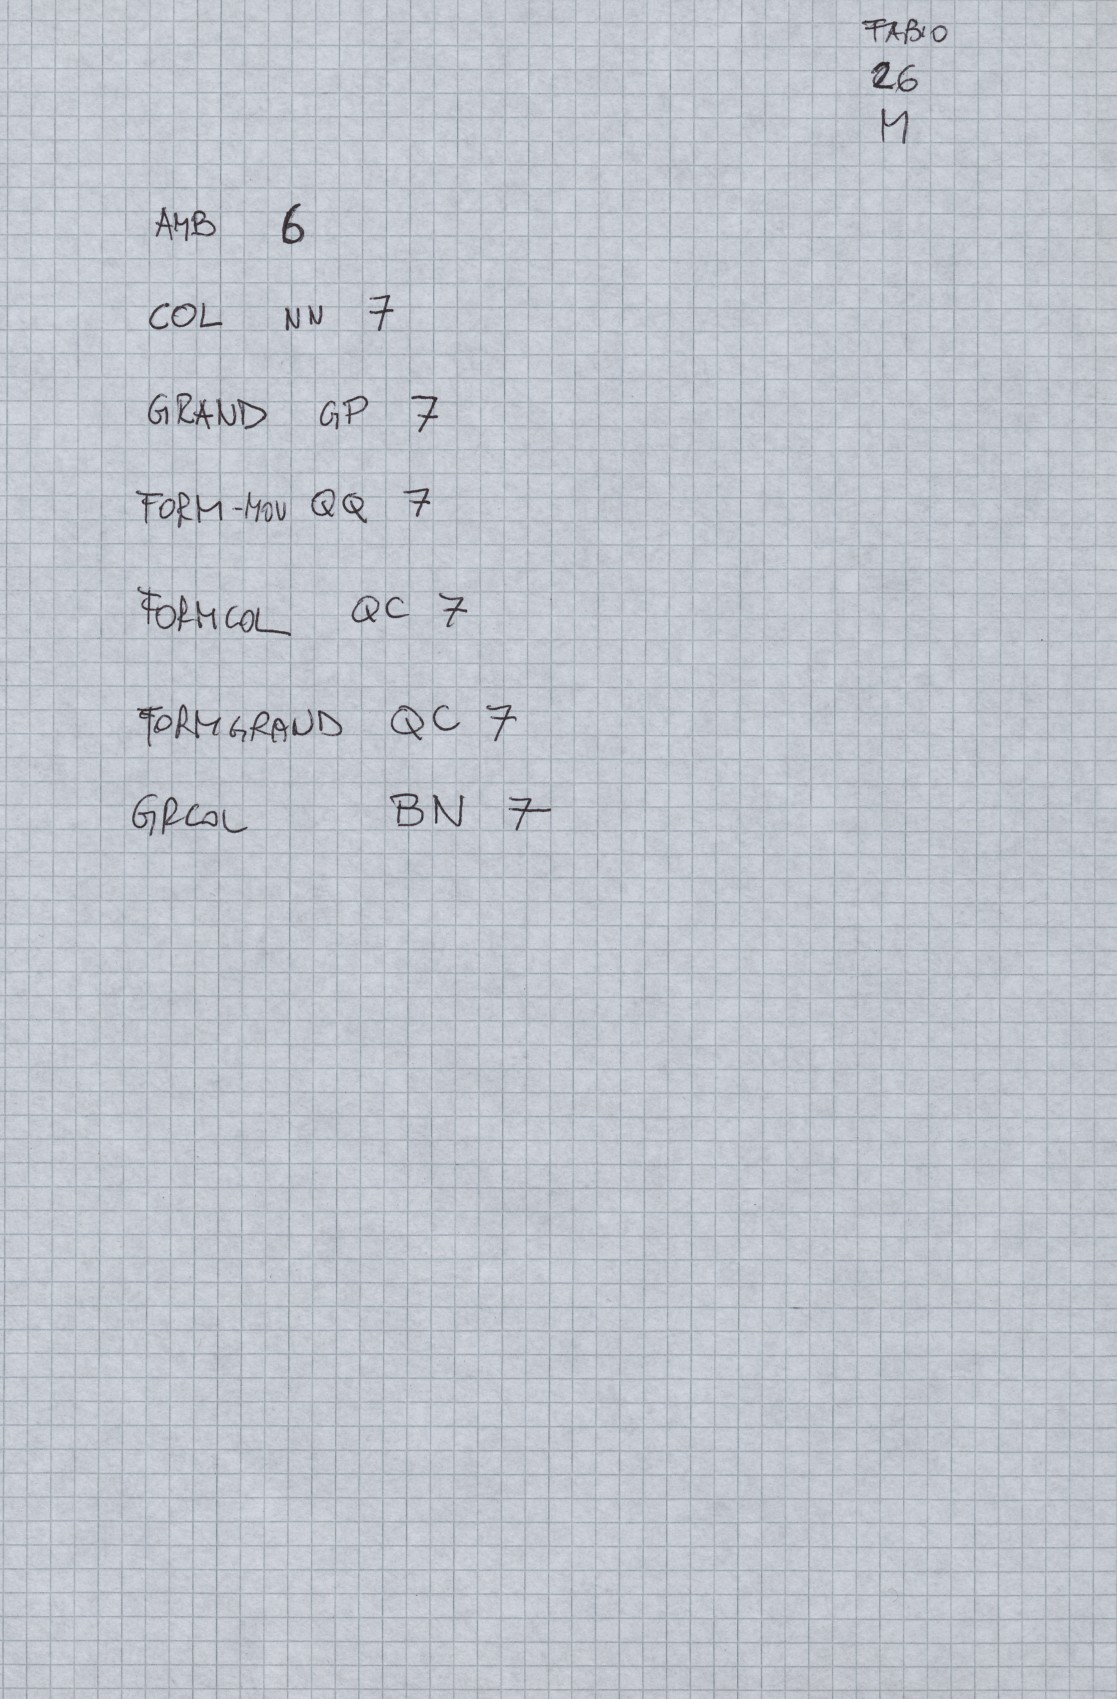 FABIO
26
M
AMB 6
COL NN 7
GRAND GP 7
FORM-MOV QQ 7
FORMCOL QC 7
FORMGRAND QC 7
GRCOL BN 7